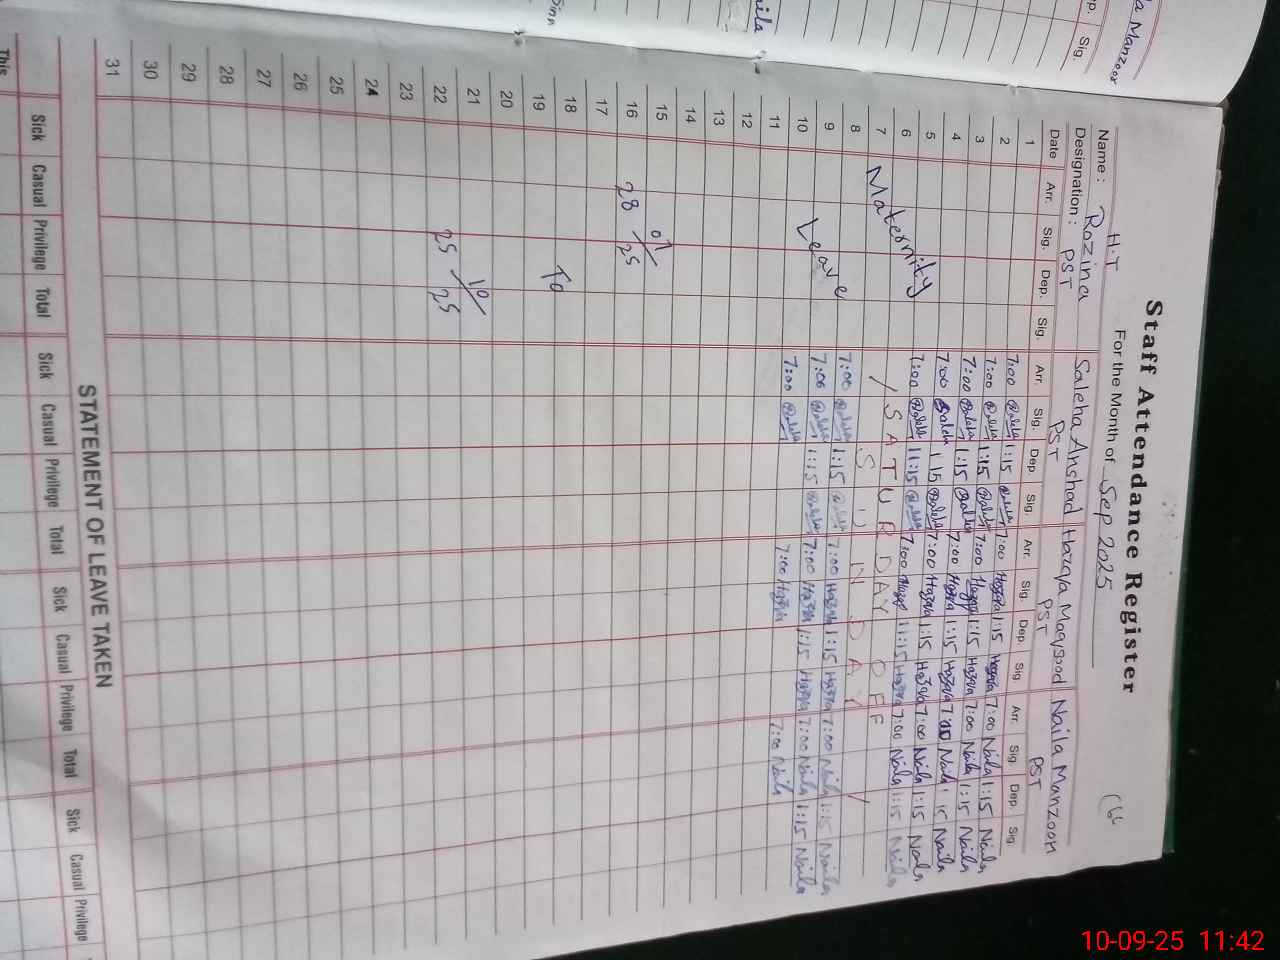 la Manzoor
p. Sig.
Staff Attendance Register
For the Month of Sep 2025
H.T
Name : Rozina Saleha Arshad Hazqa Maqsood Naila Manzoor
Designation : PST PST PST PST
Date Arr. Sig. Dep. Sig. Arr. Sig. Dep. Sig. Arr. Sig. Dep. Sig. Arr. Sig. Dep. Sig.
1 7:00 Saleha 1:15 Saleha 7:00 Hazqa 1:15 Hazqa 7:00 Naila 1:15 Naila
2 7:00 Saleha 1:15 Saleha 7:00 Hazqa 1:15 Hazqa 7:00 Naila 1:15 Naila
3 7:00 Saleha 1:15 Saleha 7:00 Hazqa 1:15 Hazqa 7:00 Naila 1:15 Naila
4 7:00 Saleha 1:15 Saleha 7:00 Hazqa 1:15 Hazqa 7:00 Naila 1:15 Naila
5 7:00 Saleha 11:15 Saleha 7:00 Hazqa 11:15 Hazqa 7:00 Naila 1:15 Naila
6 Maternity SATURDAY OFF
7 SUNDAY
8 7:00 Saleha 1:15 Saleha 7:00 Hazqa 1:15 Hazqa 7:00 Naila 1:15 Naila
9 Leave 7:00 Saleha 1:15 Saleha 7:00 Hazqa 1:15 Hazqa 7:00 Naila 1:15 Naila
10 7:00 Saleha 7:00 Hazqa 7:00 Naila
11
12
13
14
15 07/
16 28 / 25
17
18 To
19
20
21 10/
22 25 / 25
23
24
25
26
27
28
29
30
31
STATEMENT OF LEAVE TAKEN
Sick Casual Privilege Total Sick Casual Privilege Total Sick Casual Privilege Total Sick Casual Privilege
This
10-09-25 11:42